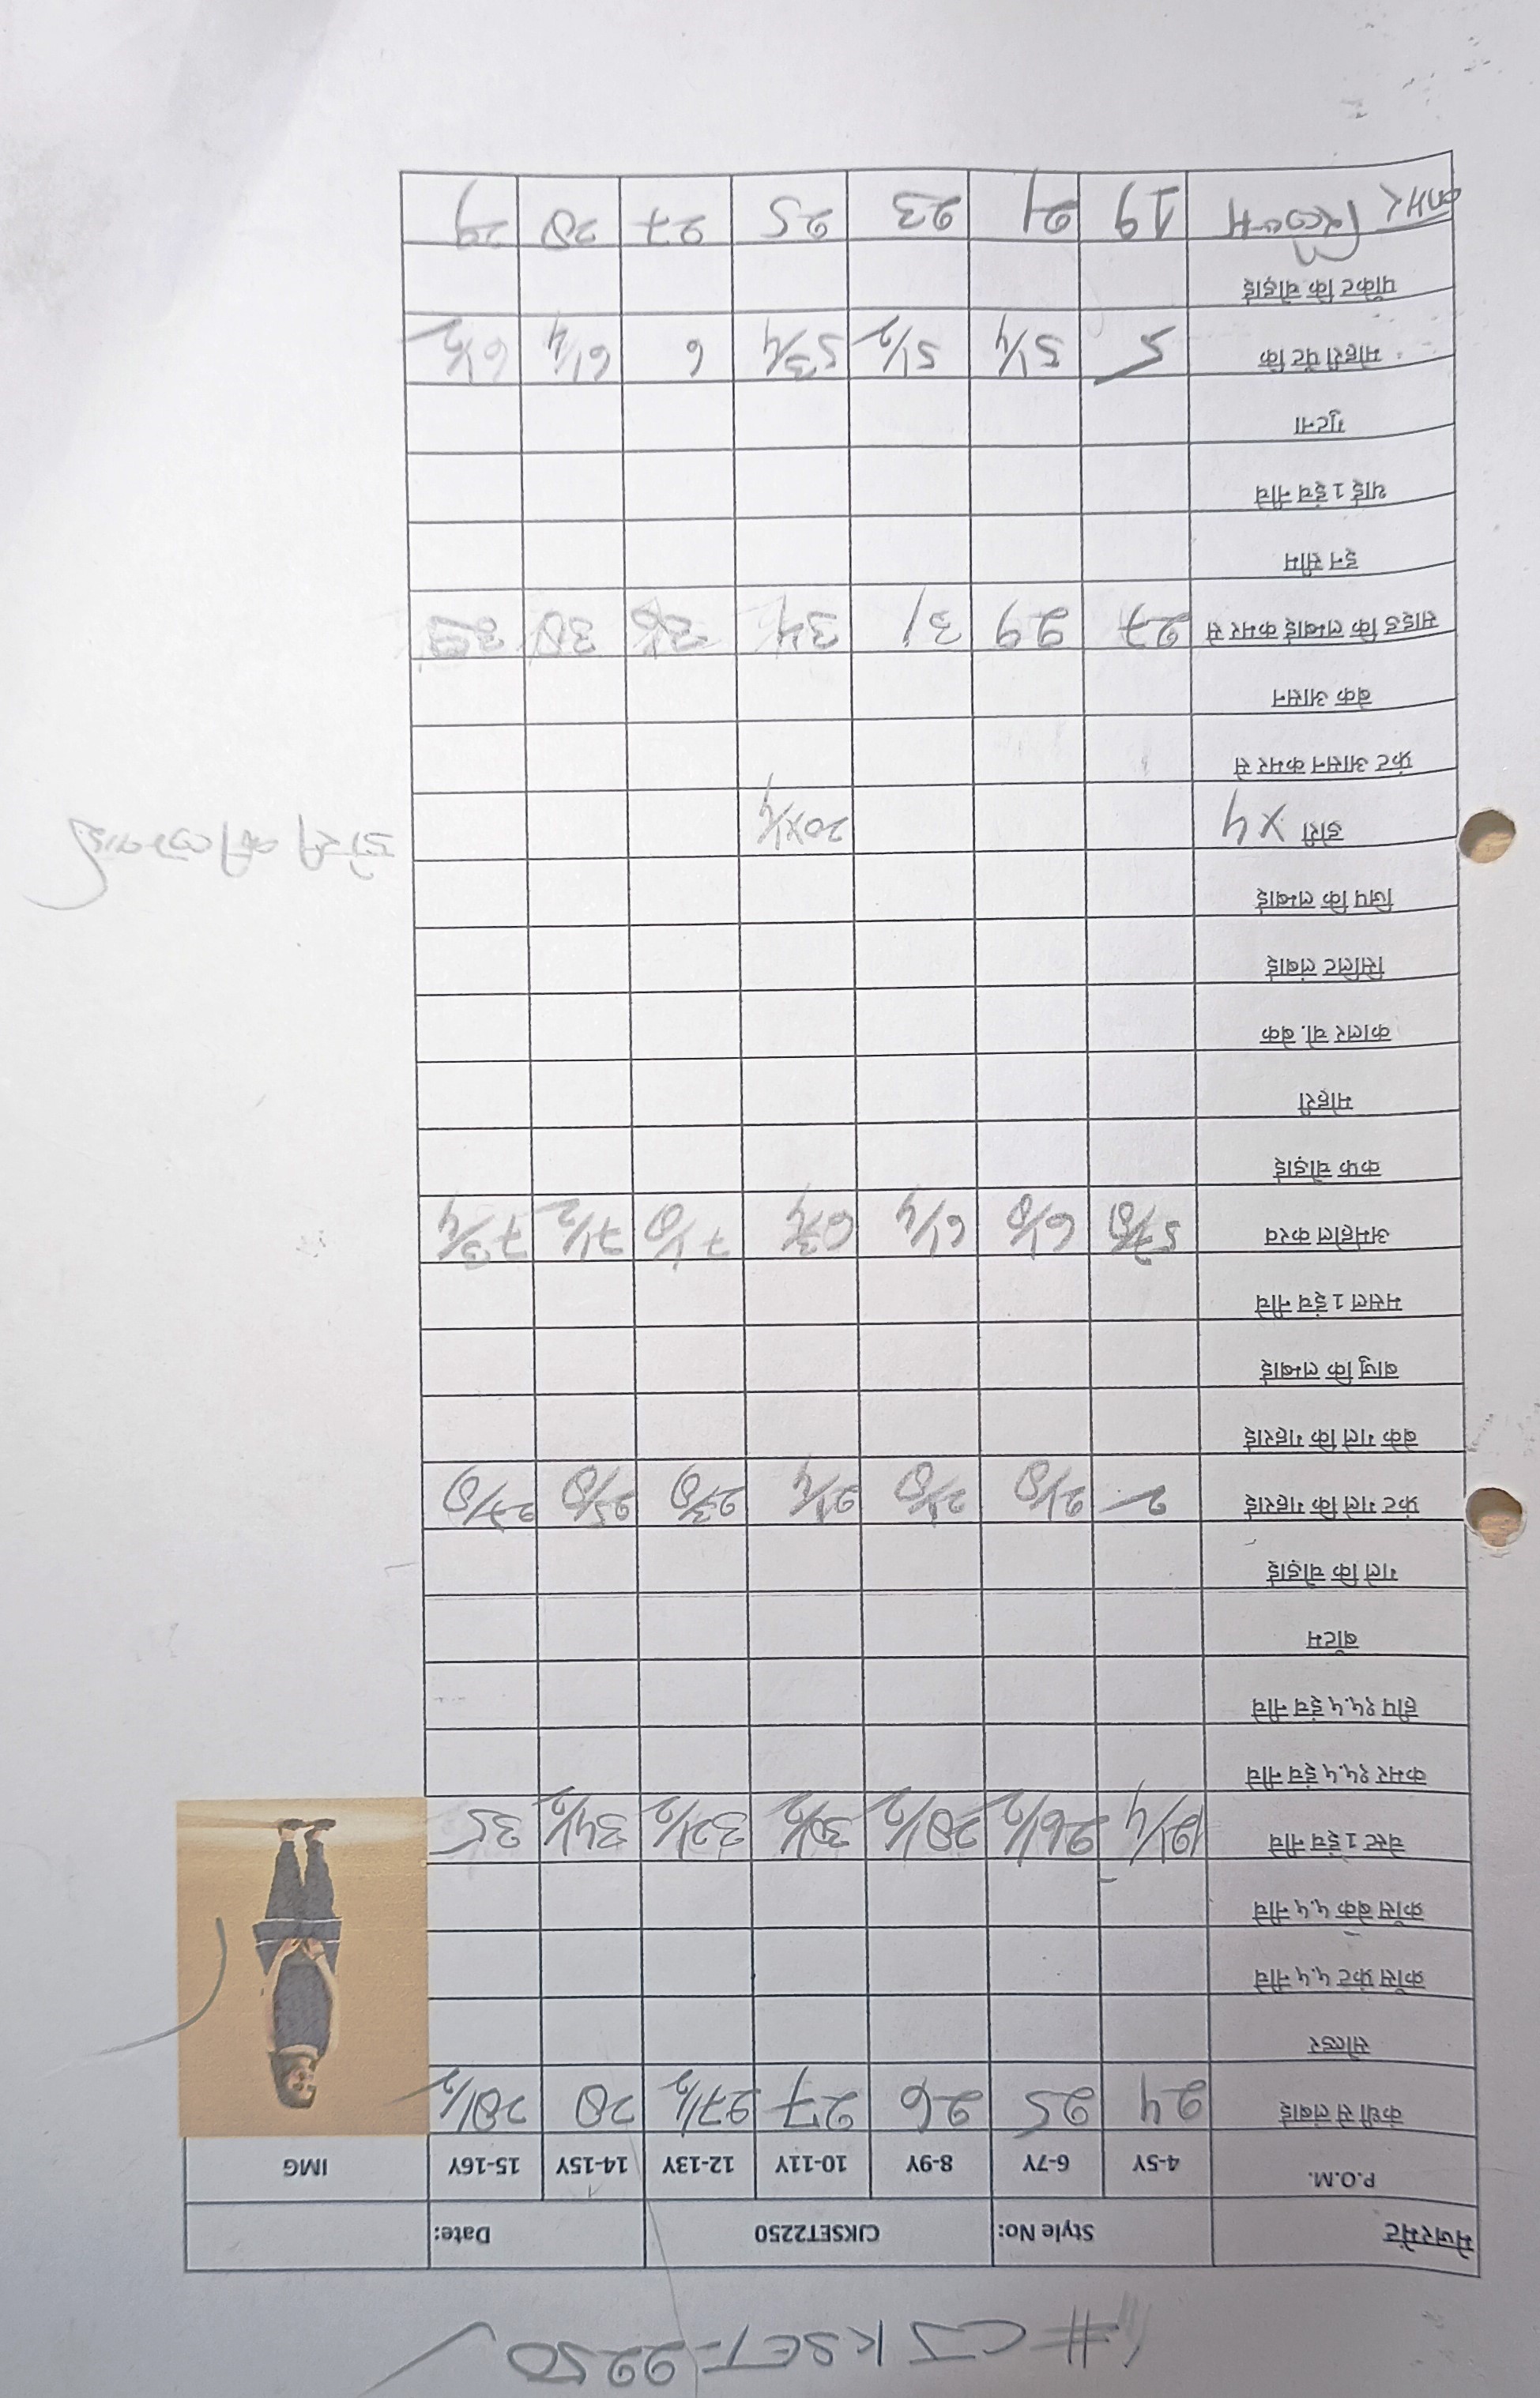 # CJKSET-2250
मेजरमेंट Style No: CJKSET2250 Date:
P.O.M. 4-5Y 6-7Y 8-9Y 10-11Y 12-13Y 14-15Y 15-16Y IMG
कंधी से लंबाई 24 25 26 27 27 1/2 28 28 1/2
सोल्डर
क्रॉस फ्रंट ५.५ नीचे
क्रॉस बेक ५.५ नीचे
चेस्ट 1 इंच नीचे 26 1/2 28 1/2 30 1/2 32 1/2 34 1/2 35
कमर १५.५ इंच नीचे
हीप १५.५ इंच नीचे
बॉटम
गले कि चोड़ाई
फ्रंट गले कि गहराई 2 2 1/8 2 1/4 2 3/8 2 5/8
बेक गले कि गहराई
बाजु कि लम्बाई
मसल 1 इंच नीचे
अर्महोल करव 5 7/8 6 1/8 6 1/4 6 3/4 7 1/8 7 1/2 7 3/4
कफ चोड़ाई
मोहरी
कालर चो. बेक
सिलिट लंबाई
जिप कि लम्बाई
डोरी x 4 20x1/4
फ्रंट आसन कमर से
बेक आसन
साइड कि लम्बाई कमर से 27 29 31 34 36 38 39
इन सीम
थाई 1 इंच नीचे
गुटना
मोहरी पेंट कि 5 5 1/4 5 1/2 5 3/4 6 6 1/4 6 1/2
पॉकेट कि चोड़ाई
कमर 19 21 23 25 27 28 29